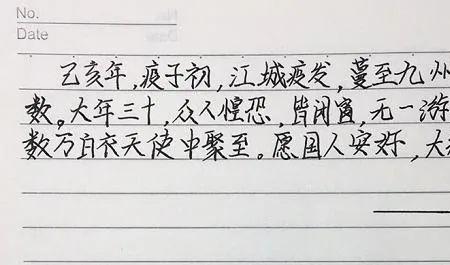 No.
Date
己亥年,庚子初,江城疫发,蔓至九州
数。大年三十,众人惶恐,皆闭窗,无一游
数万白衣天使中聚至。愿国人安好,大